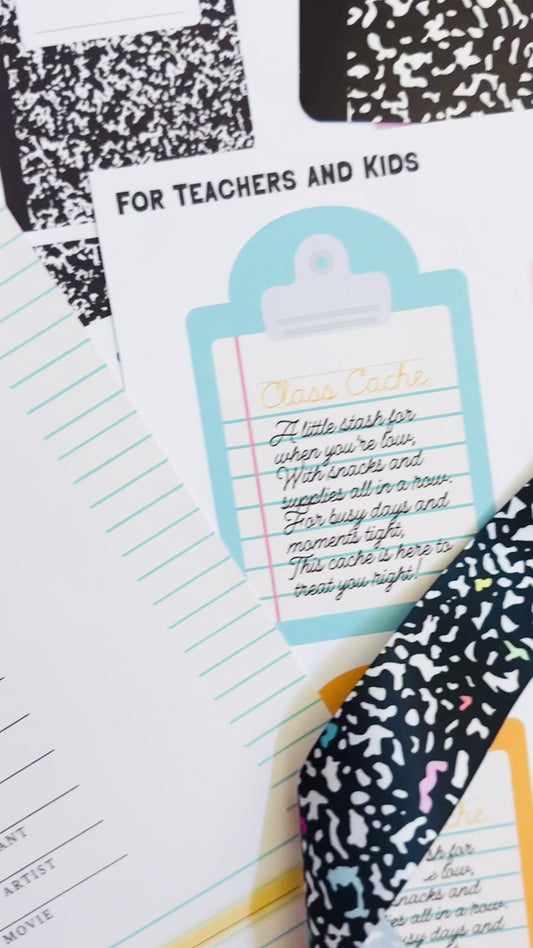 For Teachers and Kids
Class Cache
A little stash for
when you're low,
With snacks and
supplies all in a row.
For busy days and
moments tight,
This cache is here to
treat you right!
ARTIST
MOVIE
che
sh for
low,
snacks and
es all in a row.
sy days and